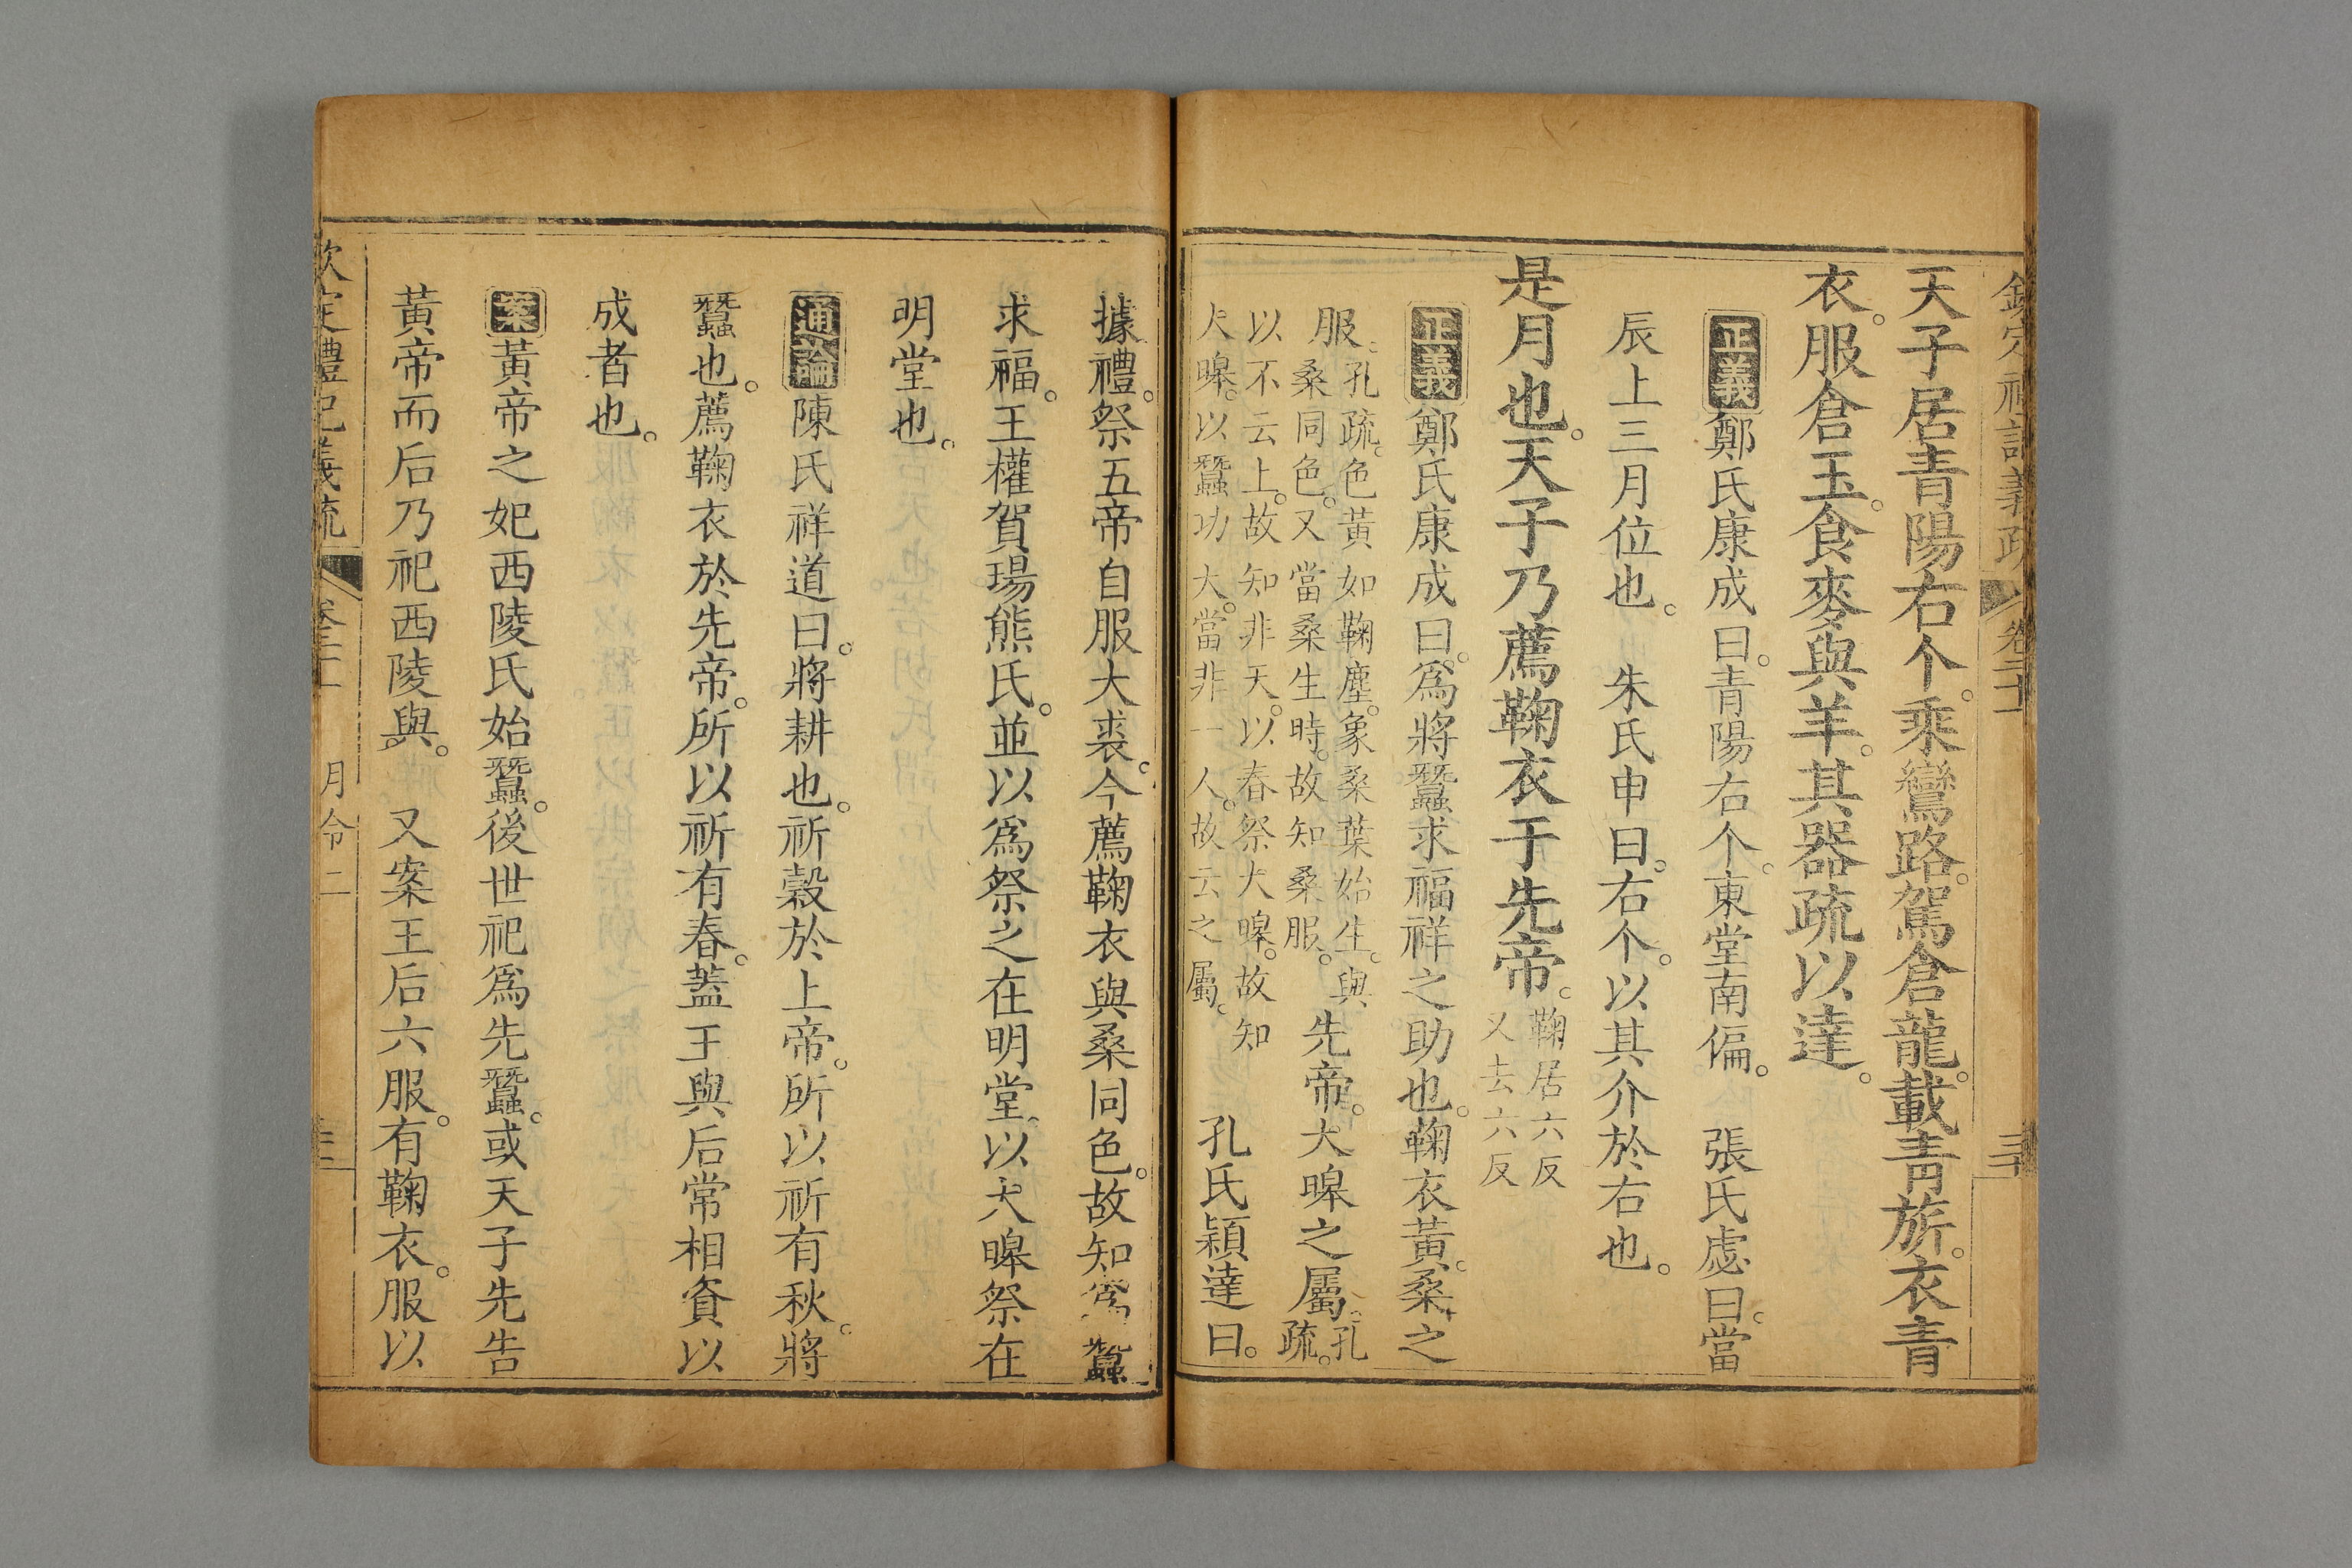 欽定禮記義疏 卷二十 三十
天子居青陽右个。乘鸞路。駕倉龍。載青旂。衣青
衣。服倉玉。食麥與羊。其器疏以達。
正義鄭氏康成曰。青陽右个。東堂南偏。 張氏虙曰。當
辰上三月位也。 朱氏申曰。右个。以其介於右也。
是月也。天子乃薦鞠衣于先帝。鞠居六反
又去六反
正義鄭氏康成曰。爲將蠶求福祥之助也。鞠衣黃。桑之
服。孔疏。色黃如鞠塵。象桑葉始生。與
桑同色。又當桑生時。故知桑服。先帝。大皥之屬。孔
疏。
以不云上。故知非天。以春祭大皥。故知
大皥。以蠶功大。當非一人。故云之屬。 孔氏穎達曰。
據禮。祭五帝自服大裘。今薦鞠衣與桑同色。故知爲蠶
求福。王權賀瑒熊氏。並以爲祭之在明堂。以大皥祭在
明堂也。
通論陳氏祥道曰。將耕也。祈穀於上帝。所以祈有秋。將
蠶也。薦鞠衣於先帝。所以祈有春。蓋王與后常相資以
成者也。
案黃帝之妃西陵氏始蠶。後世祀爲先蠶。或天子先告
黃帝而后乃祀西陵與。 又案王后六服。有鞠衣。服以
欽定禮記義疏 月令二